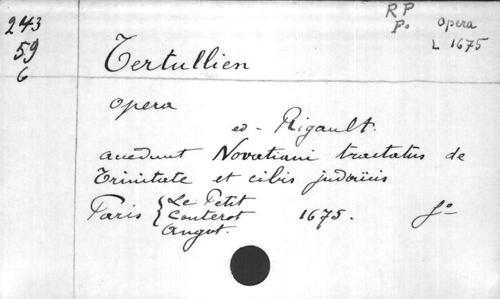 243
59
6
R P
P.
opera
L 1675
Tertullien
opera
ed - Rigault.
accedunt Novatiani tractatus de
Trinitate et cibis judaïcis
Paris { Le Petit
Couterot
Angot.
1675. fo